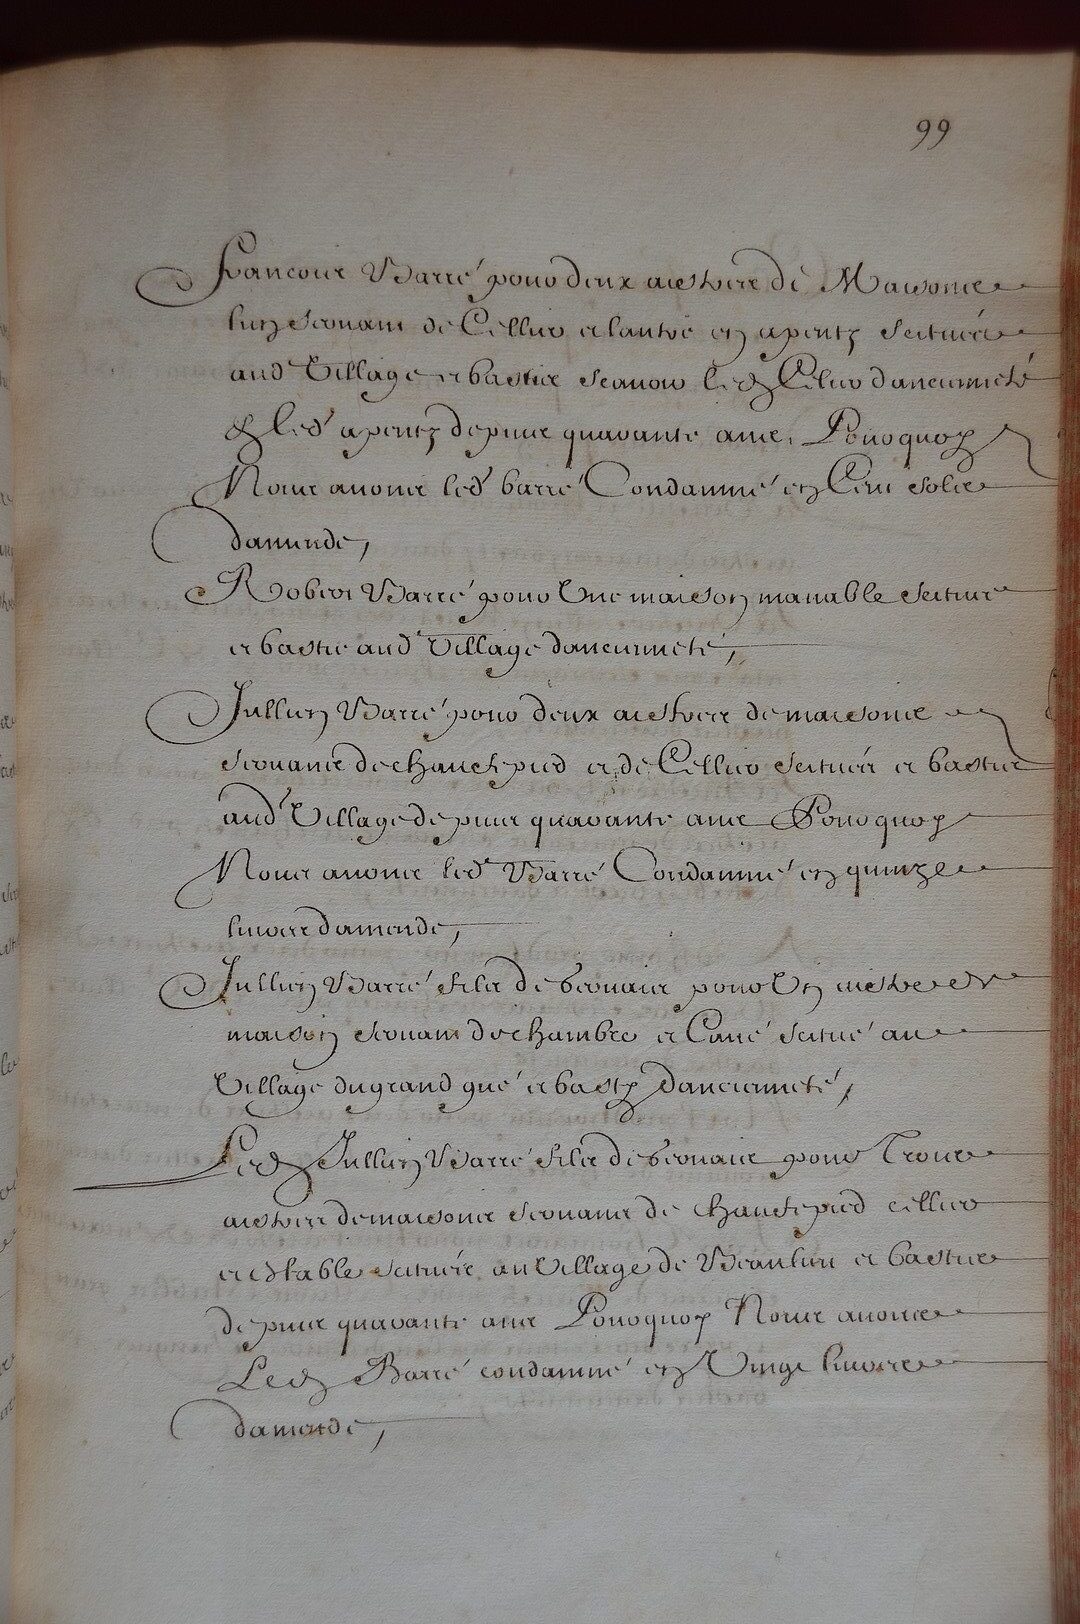 99
Francois Barré pour deux aistres de Maisons
lun servant de Cellier et lautre en apentz scitués
aud Village et bastis scavoir led Celier dancienneté
& led apentz depuis quarante ans, Pourquoy
Nous avons led barré Condamné en Cent sols
damende,
Robert Barré pour Une maison manable scituée
et bastie aud Village dancienneté,
Jullien Barré pour deux aistres de maisons
servans de chaufepied et de Cellier scitués et bastis
aud Village depuis quarante ans Pourquoy
Nous avons led Barré Condamné en quinze
livres damende,
Jullien Barré fils de servais pour Un aistre de
maison servant de chambre et Cavé scitué au
Village du grand gué et basty dancienneté,
Led Jullien Barré fils de servais pour Trois
aistres de maisons servans de chaufepied cellier
et estable scitués au Village de Beaulieu et bastis
depuis quarante ans Pourquoy Nous avons
Led Barré condamné en Vingt livres
damende,